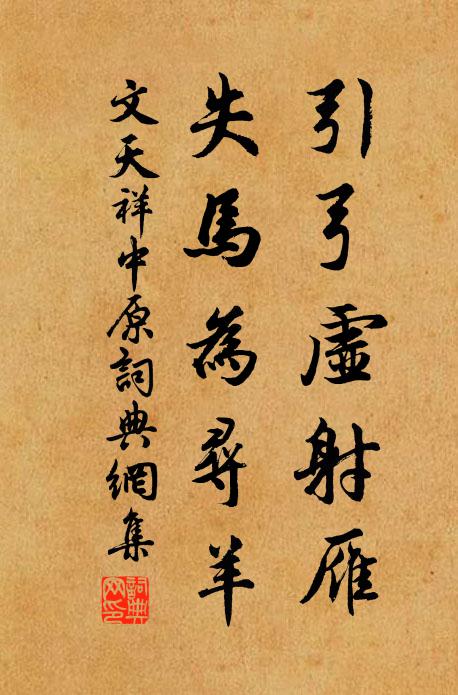 引弓虛射雁
失馬為尋羊
文天祥中原詞典網集
詞典網印